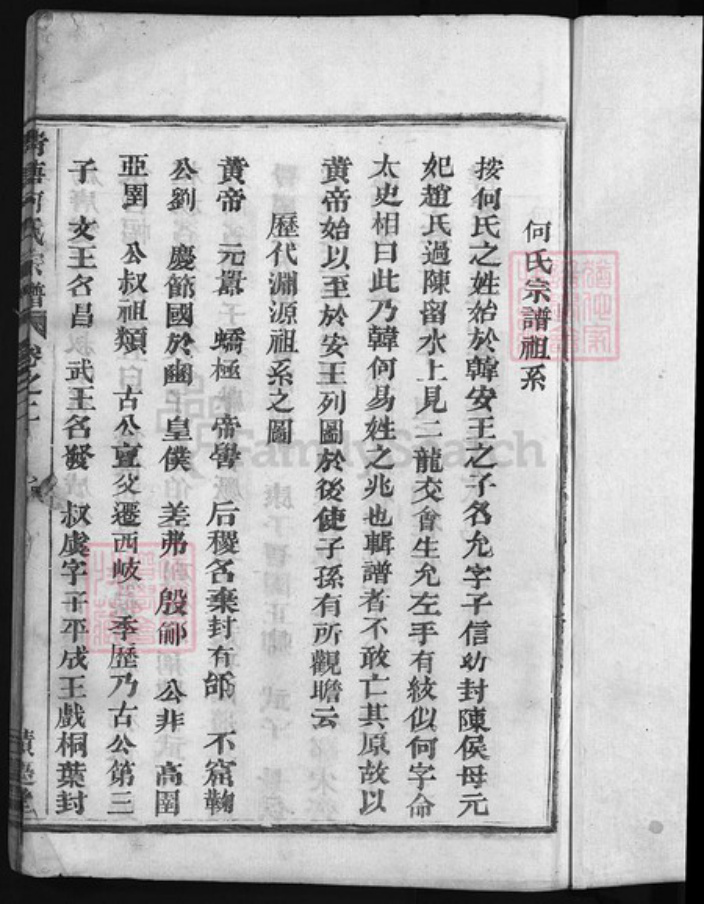 何氏宗譜祖系
按何氏之姓始於韓安王之子名允字子信幼封陳侯母元
妃趙氏過陳留水上見二龍交會生允左手有紋似何字命
太史相曰此乃韓何易姓之兆也輯譜者不敢亡其原故以
黄帝始以至於安王列圖於後使子孫有所觀瞻云
歷代淵源祖系之圖
黄帝 元囂 蟜極 帝嚳 后稷名棄封有邰 不窋 鞠
公劉 慶節國於豳 皇僕 差弗 毀隃 公非 高圉
亞圉 公叔祖類 古公亶父遷西岐 季歷乃古公第三
子 文王名昌 武王名發 叔虞字子平成王戲桐葉封
何氏宗譜 卷之
FamilySearch